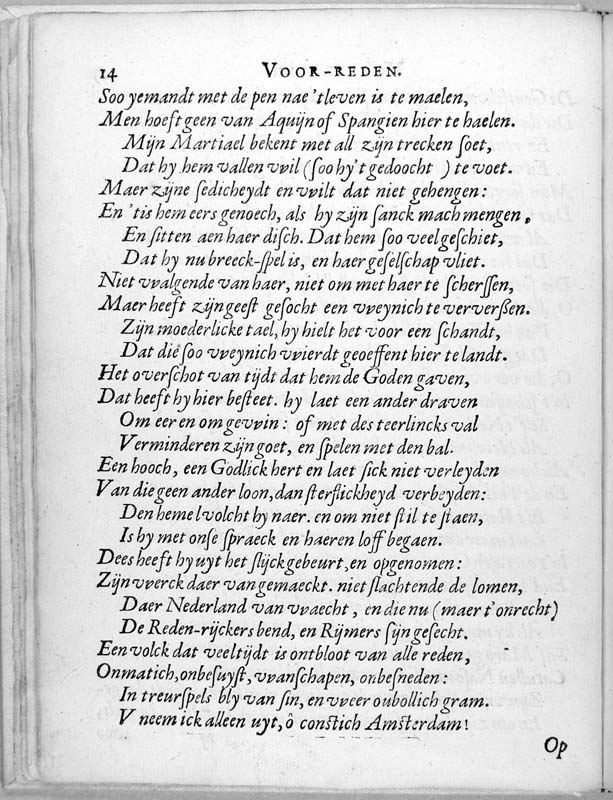 14 VOOR-REDEN.
Soo yemandt met de pen nae 'tleven is te maelen,
Men hoeft geen van Aquijn of Spangien hier te haelen.
Mijn Martiael bekent met all zijn trecken ſoet,
Dat hy hem vallen vvil (ſoo hy't gedoocht ) te voet.
Maer zijne ſedicheydt en vvilt dat niet gehengen:
En 'tis hem eers genoech, als hy zijn ſanck mach mengen,
En ſitten aen haer diſch. Dat hem ſoo veel geſchiet,
Dat hy nu breeck-ſpel is, en haer geſelſchap vliet.
Niet vvalgende van haer, niet om met haer te ſcherſſen,
Maer heeft zijn geeſt geſocht een vveynich te ververßen.
Zijn moederlicke tael, hy hielt het voor een ſchandt,
Dat die ſoo vveynich vvierdt geoeffent hier te landt.
Het overſchot van tijdt dat hem de Goden gaven,
Dat heeft hy hier beſteet. hy laet een ander draven
Om eer en om gevvin: of met des teerlincks val
Verminderen zijn goet, en ſpelen met den bal.
Een hooch, een Godlick hert en laet ſick niet verleyden
Van die geen ander loon, dan ſterflickheyd verbeyden:
Den hemel volcht hy naer. en om niet ſtil te ſtaen,
Is hy met onſe ſpraeck en haeren loff begaen.
Dees heeft hy uyt het ſlijck gebeurt, en opgenomen:
Zijn vverck daer van gemaeckt. niet ſlachtende de lomen,
Daer Nederland van vvaecht, en die nu (maer t'onrecht)
De Reden-rijckers bend, en Rijmers ſijn geſecht.
Een volck dat veeltijdt is ontbloot van alle reden,
Onmatich, onbeſuyſt, vvanſchapen, onbeſneden:
In treurſpels bly van ſin, en vveer oubollich gram.
V neem ick alleen uyt, ô conſtich Amſterdam!
Op